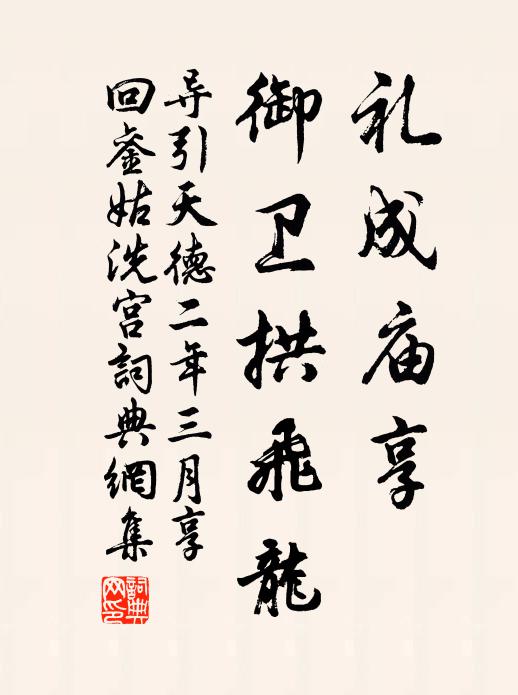 礼成庙享
御卫拱飛龍
导引天德二年三月享
回銮姑洗宫詞典網集
詞典网印